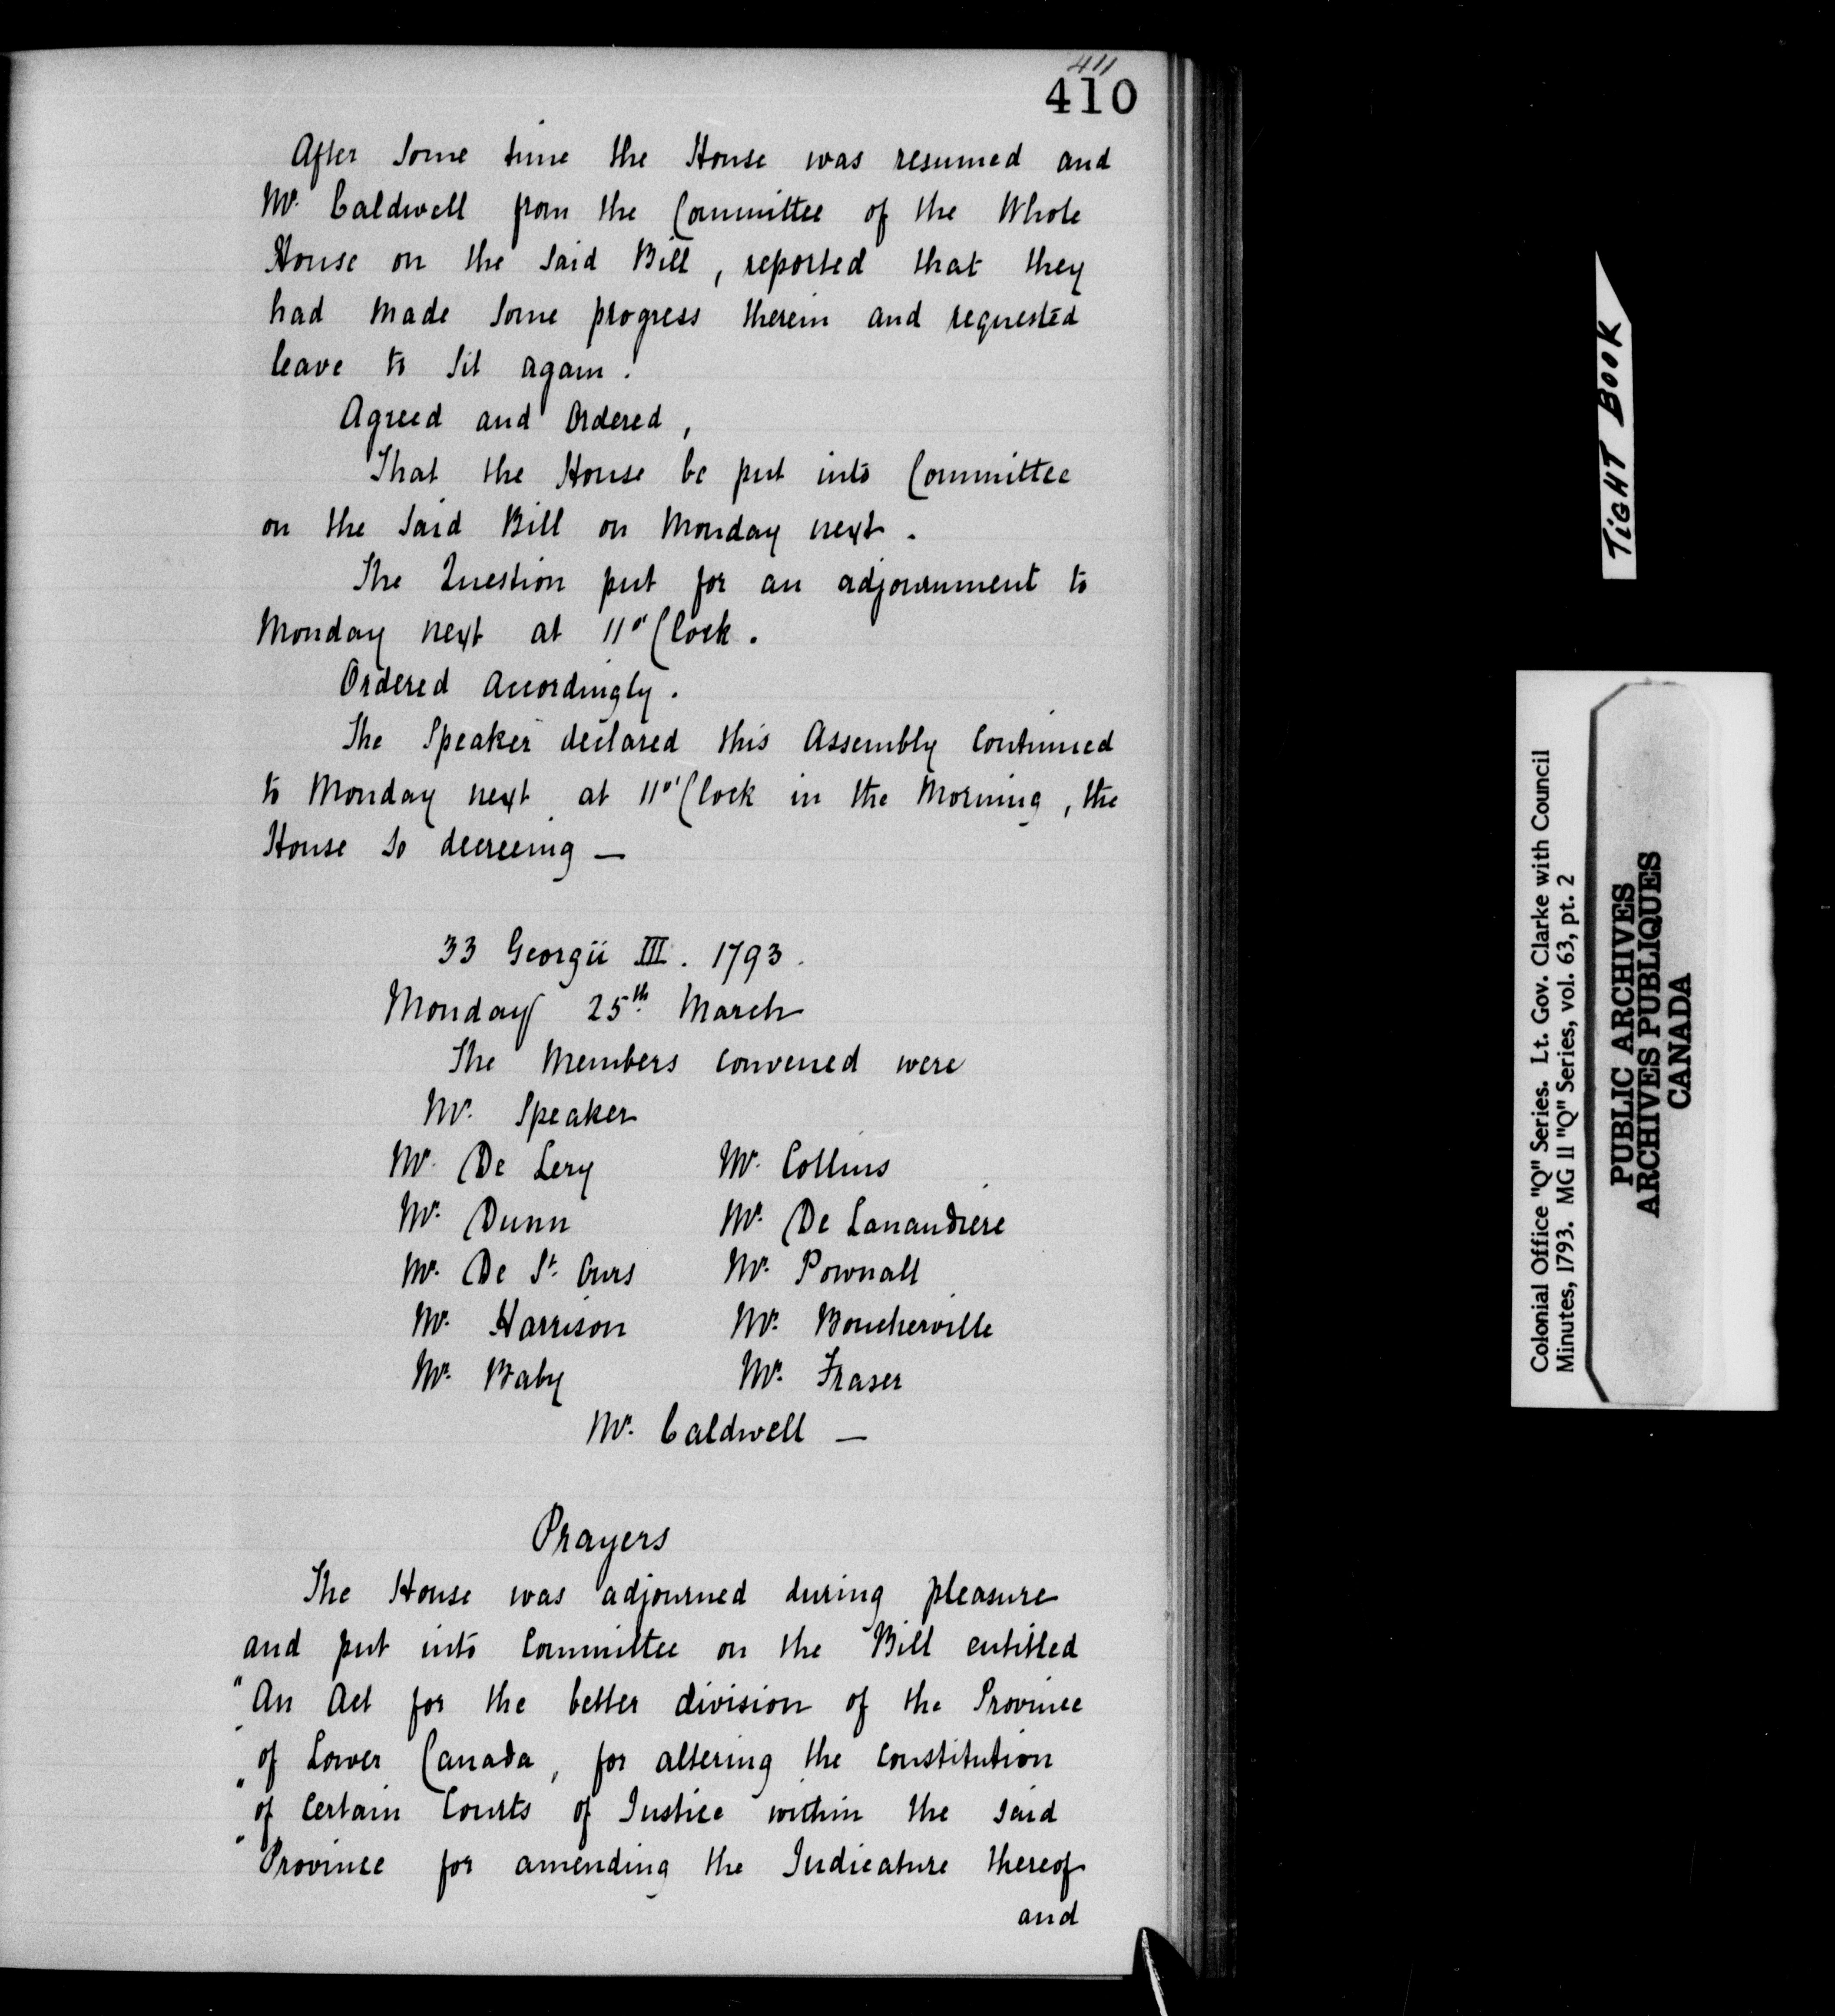 411
410
After some time the House was resumed and
Mr. Caldwell from the Committee of the Whole
House on the said Bill, reported that they
had made some progress therein and requested
leave to sit again.
Agreed and Ordered,
That the House be put into Committee
on the said Bill on Monday next.
The Question put for an adjournment to
Monday next at 11 o'Clock.
Ordered accordingly.
The Speaker declared this Assembly continued
to Monday next at 11 o'Clock in the Morning, the
House so decreeing —
33 Georgii III. 1793.
Monday 25th March
The Members convened were
Mr. Speaker
Mr. De Lery Mr. Collins
Mr. Dunn Mr. De Lanaudiere
Mr. De St. Ours Mr. Pownall
Mr. Harrison Mr. Boucherville
Mr. Baby Mr. Fraser
Mr. Caldwell —
Prayers
The House was adjourned during pleasure
and put into Committee on the Bill entitled
"An Act for the better division of the Province
"of Lower Canada, for altering the constitution
"of certain Courts of Justice within the said
"Province for amending the Judicature thereof
and
TIGHT BOOK
Colonial Office "Q" Series. Lt. Gov. Clarke with Council
Minutes, 1793. MG 11 "Q" Series, vol. 63, pt. 2
PUBLIC ARCHIVES
ARCHIVES PUBLIQUES
CANADA